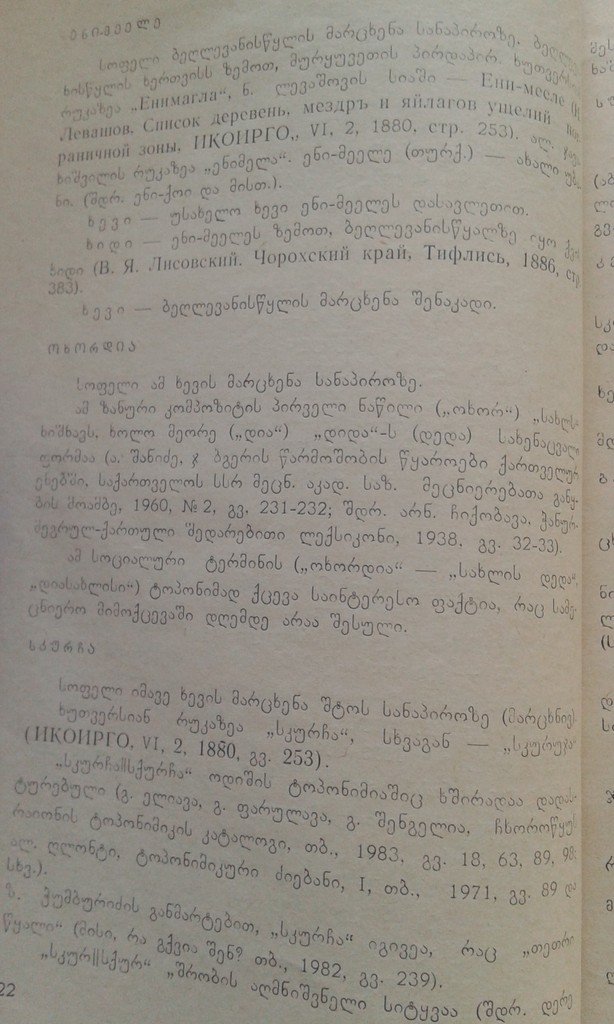 ენი-მეელე
სოფელი ბეღლევანისწყლის მარცხენა სანაპიროზე,
ხისწყლის ხერთვისს ზემოთ, მურყუვეთის პირდაპირ. ხუთვერსიან
რუკაზეა „Енимагла“, ნ. ლევაშოვის სიაში — Ени-меєле
Левашов, Список деревень, мездръ и яйлагов ущелий
раничной зоны, ИКОИРГО,, VI, 2, 1880, стр. 253). ალ.
ხიშვილის რუკაზეა „ენიმელა“. ენი-მეელე (თურქ.) — ახალი უბა-
ნი. (შდრ. ენი-ქოი და მისთ.).
ხევი — უსახელო ხევი ენი-მეელეს დასავლეთით.
ხიდი — ენი-მეელეს ზემოთ, ბეღლევანისწყალზე იყო
ხიდი (В. Я. Лисовский. Чорохский край, Тифлись, 1886, стр.
383).
ხევი — ბეღლევანისწყლის მარცხენა შენაკადი.
ოხორდია
სოფელი ამ ხევის მარცხენა სანაპიროზე.
ამ ზანური კომპოზიტის პირველი ნაწილი („ოხორ“) „სახლს“
ნიშნავს, ხოლო მეორე („დია“) „დიდა“-ს (დედა) სახენაცვალი
ფორმაა (ა. შანიძე, ჯ ბგერის წარმოშობის წყაროები ქართველურ
ენებში, საქართველოს სსრ მეცნ. აკად. საზ. მეცნიერებათა განყ-
ბის მოამბე, 1960, № 2, გვ. 231-232; შდრ. არნ. ჩიქობავა, ჭანურ-
მეგრულ-ქართული შედარებითი ლექსიკონი, 1938, გვ. 32-33).
ამ სოციალური ტერმინის („ოხორდია“ — „სახლის დედა“,
„დიასახლისი“) ტოპონიმად ქცევა საინტერესო ფაქტია, რაც სამე-
ცნიერო მიმოქცევაში დღემდე არაა შესული.
სკურჩა
სოფელი იმავე ხევის მარცხენა შტოს სანაპიროზე (მარცხნივ).
ხუთვერსიან რუკაზეა „სკურჩა“, სხვაგან —
(ИКОИРГО, VI, 2, 1880, გვ. 253).
„სკურჩა||სქურჩა“ ოდიშის ტოპონიმიაშიც ხშირადაა დადას-
ტურებული (გ. ელიავა, გ. ფარულავა, გ. შენგელია, ჩხოროწყუს
რაიონის ტოპონიმიკის კატალოგი, თბ., 1983, გვ. 18, 63, 89, 98;
ალ. ღლონტი, ტოპონიმიკური ძიებანი, I, თბ., 1971, გვ. 89 და
სხვ.).
ზ. ჭუმბურიძის განმარტებით, „სკურჩა“ იგივეა, რაც „თეთრი
წყალი“ (მისი, რა გქვია შენ? თბ., 1982, გვ. 239).
„სკურ||სქურ“ „შრობის აღმნიშვნელი სიტყვაა (შდრ. დერე
22